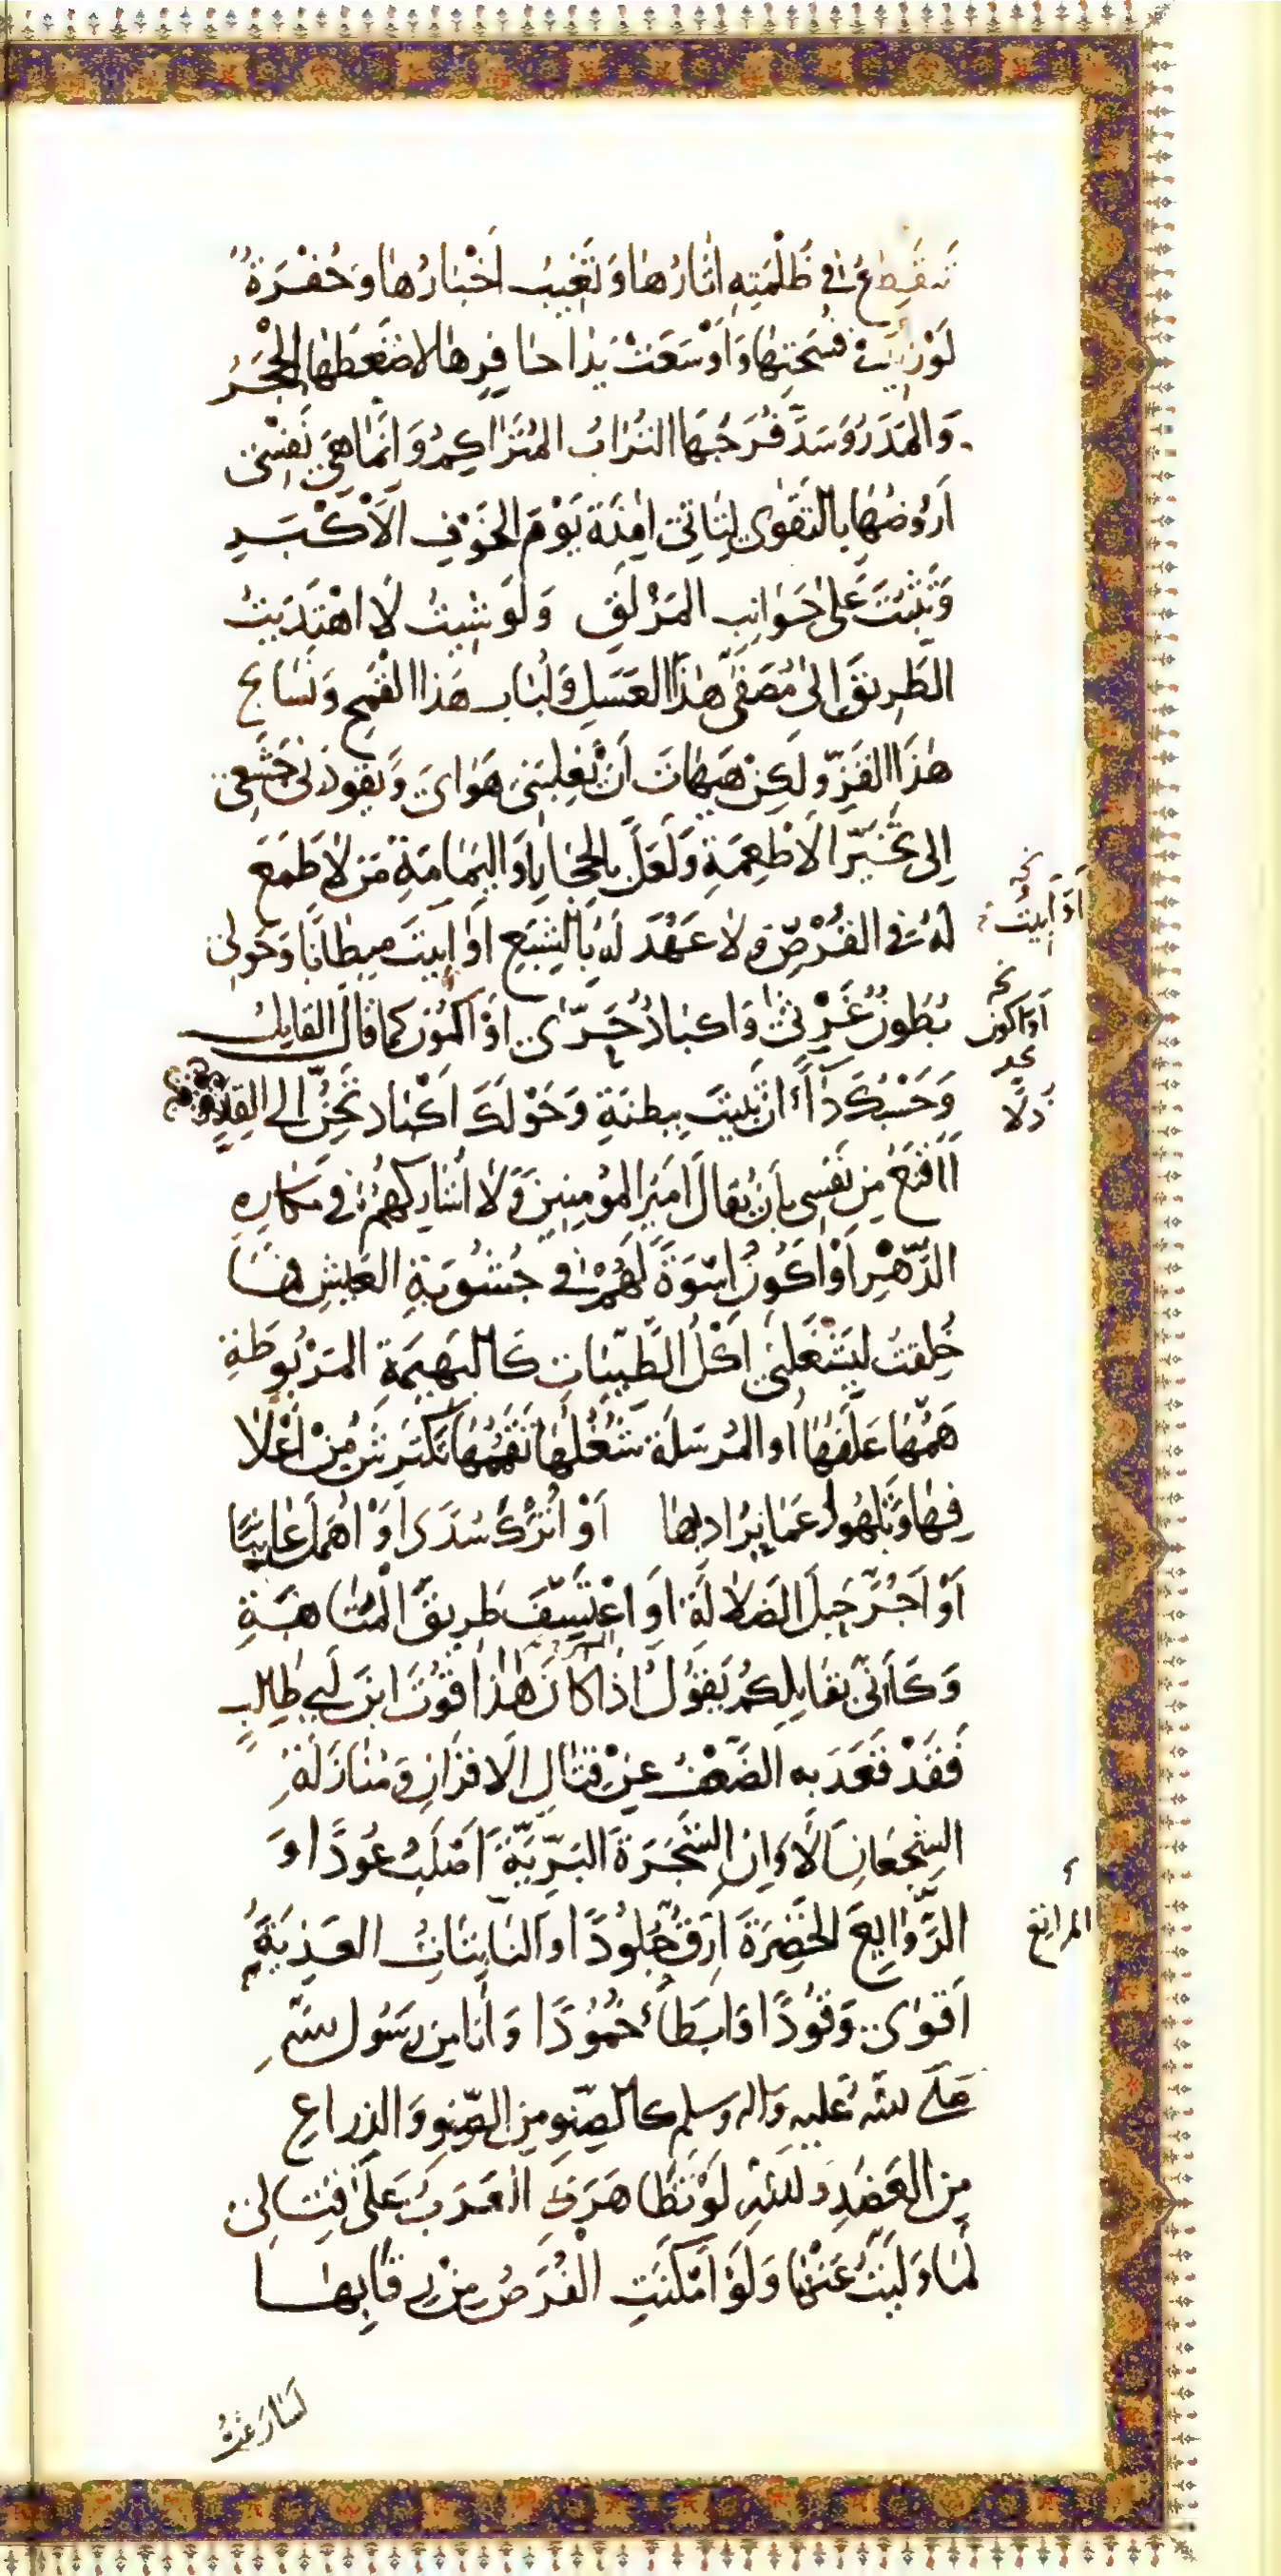 تَنقَطِعُ في ظُلْمَتِهِ اثَارُهَا وَتَغِيبُ اَخْبَارُهَا وَحُفْرَةٌ
لَوْ زِيدَتْ فُسْحَتِهَا وَاَوْسَعَتْ يَدَا حَافِرِهَا لاضغَطَهَا الحَجَرُ
وَالمَدَرُ وَسَدَّ فُرَجَهَا التُرَابُ المُتَرَاكِمُ وَانَّمَا هِيَ نَفْسِي
اَرُوضُهَا بِالتَقْوى لِتَاتِيَ امِنَةً يَوْمَ الخَوْفِ الاَكْبَرِ
وَتَثْبُتَ عَلى جَوَانِبِ المَزْلَقِ وَلَو شِيتُ لَاهْتَدَيتُ
الطَرِيقَ اِلى مُصَفّى هذَا العَسَلِ وَلُبَابِ هَذا القَمْحِ وَنَسَايجِ
هذَا القَزِّ ولكِنْ هَيهَاتَ اَنْ تَغلِبَنِي هَوَايَ وَيَقُودَنِي جَشَعِي
اِلى تَخَيُّرِ الاَطْعِمَةِ وَلَعَلَّ بِالحِجَازِ اَو اليَمَامَةِ مَن لاَ طَمَعَ
لَهُ في القُرْصِ ولاَ عَهْدَ لَهُ بِالشِبَعِ اَو اَبِيتَ مبطَانًا وَحَولِي
بُطُونٌ غَرْثى وَاكبَادٌ حَرّى اَوْ اَكُونَ كمَا قَالَ القَايِلُ
وَحَسْبُكَ دَاءً اَنْ تَبِيتَ بِبِطنَةٍ وَحَوْلَكَ اَكْبَاد تَحِنُّ اِلى القِدِّ
اَاَقنَعُ مِن نَفسِي بِاَن يُقَالَ اَمِيرُ المُومِنِينَ وَلَا اُشَارِكُهُمْ في مَكَارِهِ
الدَّهْرِ اَوْ اَكُونَ اُسْوَةً لَهُمْ في جُشُوبَةِ العَيشِ فمَا
خُلِقتُ لِيَشْغَلَنِي اَكْلُ الطَّيِّبَاتِ كَالبَهِيمَةِ المَرْبُوطَةِ
هَمُّهَا عَلَفُهَا اَو المُرسَلَةِ شُغُلُهَا تَقَمُّمُهَا تَكتَرِشُ مِنْ اَعْلَا
فِهَا وَتَلهُو عَمَا يُرَادُ بِهَا اَوْ اُتْرَكَ سُدَى اَوْ اُهمَلَ عَابِثًا
اَوْ اَجُرَّ حَبلَ الضَلاَلَةِ اَو اعتَسِفَ طَرِيقَ المَتَاهَةِ
وَكَاَنّي بقَايِلِكُمْ يَقُولُ اذَا كَانَ هذَا قُوتَ ابنَ اَبي طَالِبٍ
فَقَدْ قَعَدَ به الضَعْفُ عَنْ قِتَالِ الاَقرَانِ وَمُنَازَلَةِ
الشِجعَانِ اَلَا وَاِنَّ الشَجَرَةَ البَرِّيَّةَ اَصْلَبُ عُودًا وَ
الرَّوَايِعَ الخَضِرَةَ اَرَقُّ جُلُودًا وَالنَابِتَاتُ العَذِيَةُ
اَقوَى وَقُودًا وَاَبطَأُ خُمُودًا وَاَنَا مِن رَسُولِ اللهِ
صَلّى اللهُ عَليهِ وَالِهِ وَسلم كالصِنوِ مِن الصِّنوِ وَالذِراعِ
مِن العَضُدِ وَاللهِ لَوْ تَظَاهَرَتِ العَرَبُ عَلى قِتَالِي
لَمَا وَلّيتُ عَنْهَا وَلَوْ اَمْكَنَتِ الفُرَصُ مِنْ رِقَابِهَا
اَوَ اَبِيتُ
اَوَ اَكون
دَاءً
المراتع
لَسَارَعْتُ